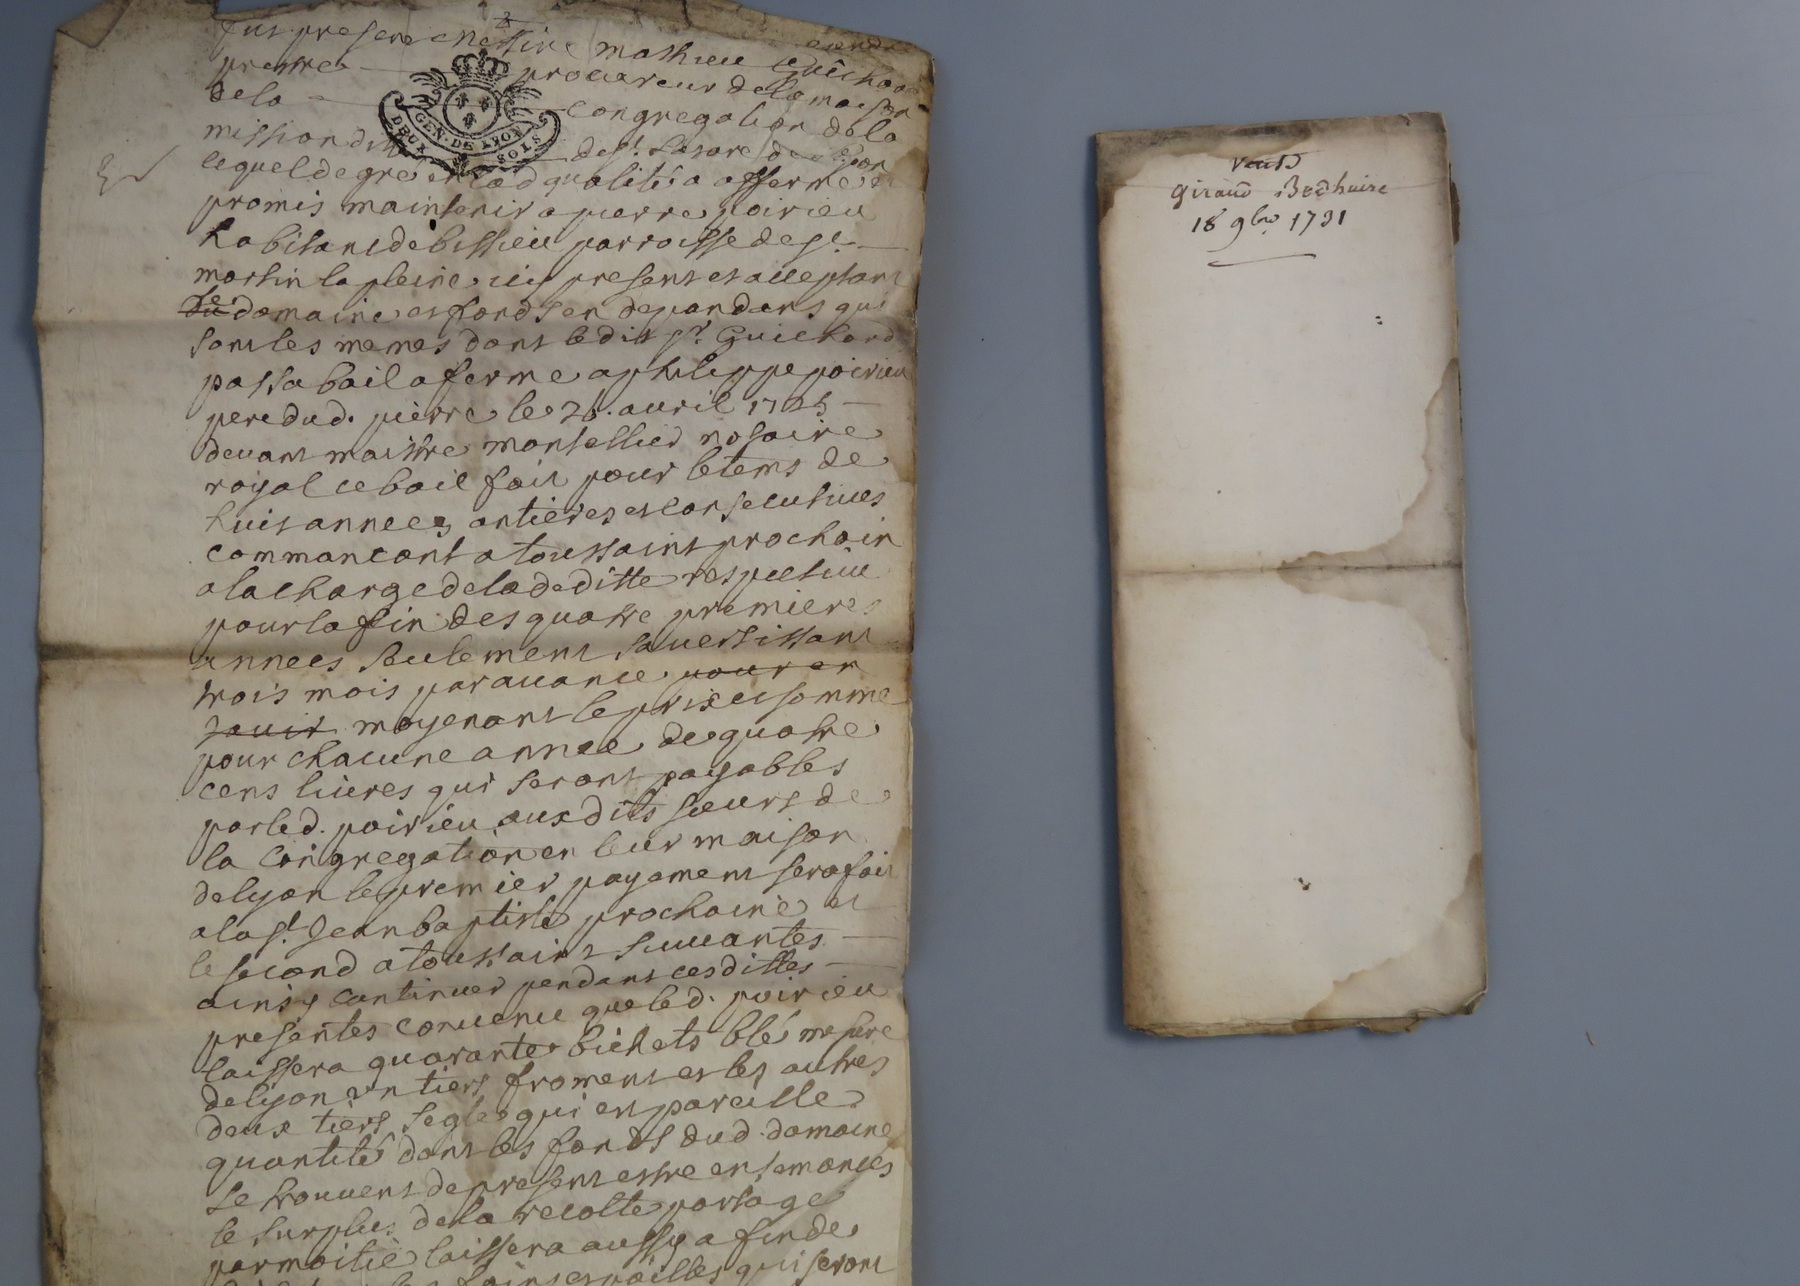 fut present Messire Mathieu Guichard
prestre procureur de la maison
de la Congregation de la
mission de St. Lazare de Lyon
GEN. DE LYON
DEUX SOLS
lequel de gre et lad qualité a affermé et
promis maintenir a pierre poirieu
habitant de bissieu parroisse de St.
martin la pleine icy present et acceptant
du le domaine et fonds en dependans qui
sont les memes dont ledit Sr. Guichard
passa bail a ferme a philippe poirieu
pere dud. pierre le 26. auril 1725
deuant maistre montellier notaire
royal ce bail fait pour le tems de
huit annees antieres et consecutiues
commancant a toussaint prochain
a la charge de la deditte respectiue
pour la fin des quatre premieres
annees seulement sauertissant
trois mois parauance pour en
jouir moyenant le prix et somme
pour chacune annee de quatre
cens liures qui seront payables
par led. poirieu auxdits sieurs de
la Congregation en leur maison
de lyon le premier payement sera fait
a la St. Jean baptiste prochaine et
le second a toussaint suiuantes
ainsy continuer pendant cesdittes
presentes conuenu que led. poirieu
laissera quarante bichets blé mesure
de lyon un tiers froment et les autres
deux tiers segle qui en pareille
quantité dans les fonds dud. domaine
se trouuent de present estre ensemancés
le surplus de la recolte partagé
par moitié laissera aussy a fin de
foins et pailles qui seront
vente
giraud
18 9bre 1731